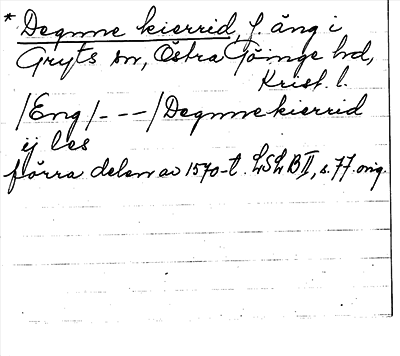 * Degnne kierrid, f. äng i
Gryts sn, Östra Göinge hd,
Krist. l.
/Eng/ - - - /Degnnekierrid
ej les
förra delen av 1570-t. LSLB II, s. 77. orig.